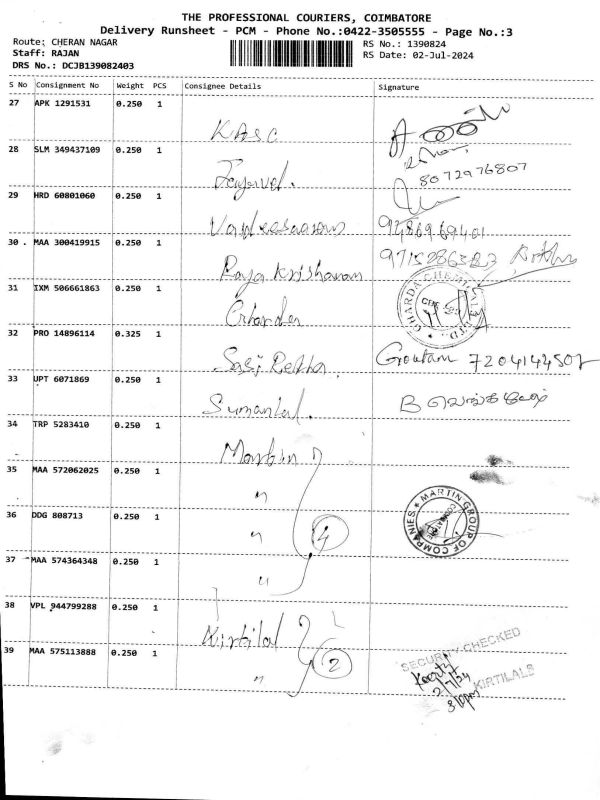 THE PROFESSIONAL COURIERS, COIMBATORE
Delivery Runsheet - PCM - Phone No.:0422-3505555 - Page No.:3
Route: CHERAN NAGAR RS No.: 1390824
Staff: RAJAN RS Date: 02-Jul-2024
DRS No.: DCJB139082403
S No Consignment No Weight PCS Consignee Details Signature
27 APK 1291531 0.250 1 KASC
28 SLM 349437109 0.250 1
8072976807
29 HRD 60801060 0.250 1
30 . MAA 300419915 0.250 1 Raja Krishanan
31 IXM 506661863 0.250 1 GHARDA CHEMICALS LTD.
32 PRO 14896114 0.325 1 Goutam
33 UPT 6071869 0.250 1 Sumanlal. B வெங்கடேஷ்
34 TRP 5283410 0.250 1 Martin
35 MAA 572062025 0.250 1 "
36 DDG 808713 0.250 1 " 4 MARTIN GROUP OF COMPANIES
37 MAA 574364348 0.250 1 "
38 VPL 944799288 0.250 1 Kirtilal
39 MAA 575113888 0.250 1 " 2 SECURITY CHECKED
KIRTILALS
2/7/24